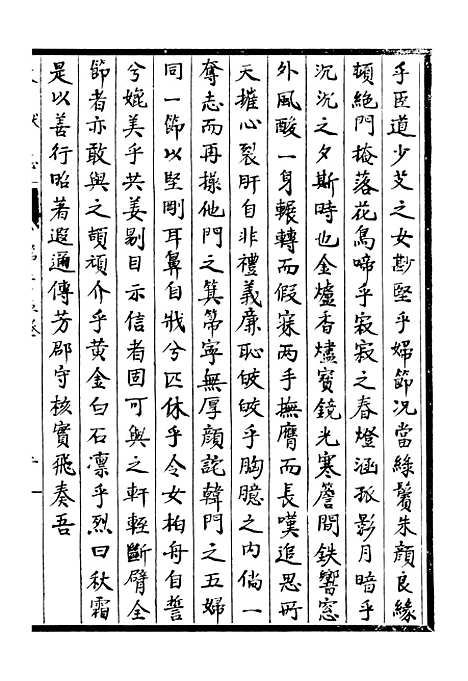 乎臣道少艾之女尠堅乎婦節况當綠鬢朱顔良緣
頓絶門掩落花鳥啼乎寂寂之春燈涵孤影月暗乎
沉沉之夕斯時也金爐香燼寳鏡光寒簷間鉄響窓
外風酸一身輾轉而假寐兩手撫膺而長嘆追思所
天摧心裂肝自非禮義廉恥皎皎乎胸臆之内倘一
奪志而再㨾他門之箕箒寧無厚顔詫韓門之五婦
同一節以堅剛耳鼻自戕兮匹休乎令女柏舟自誓
兮媲美乎共姜剔目示信者固可與之軒輊斷臂全
節者亦敢與之頡頑介乎黄金白石凛乎烈日秋霜
是以善行昭著遐邇傳芳郡守核實飛奏吾